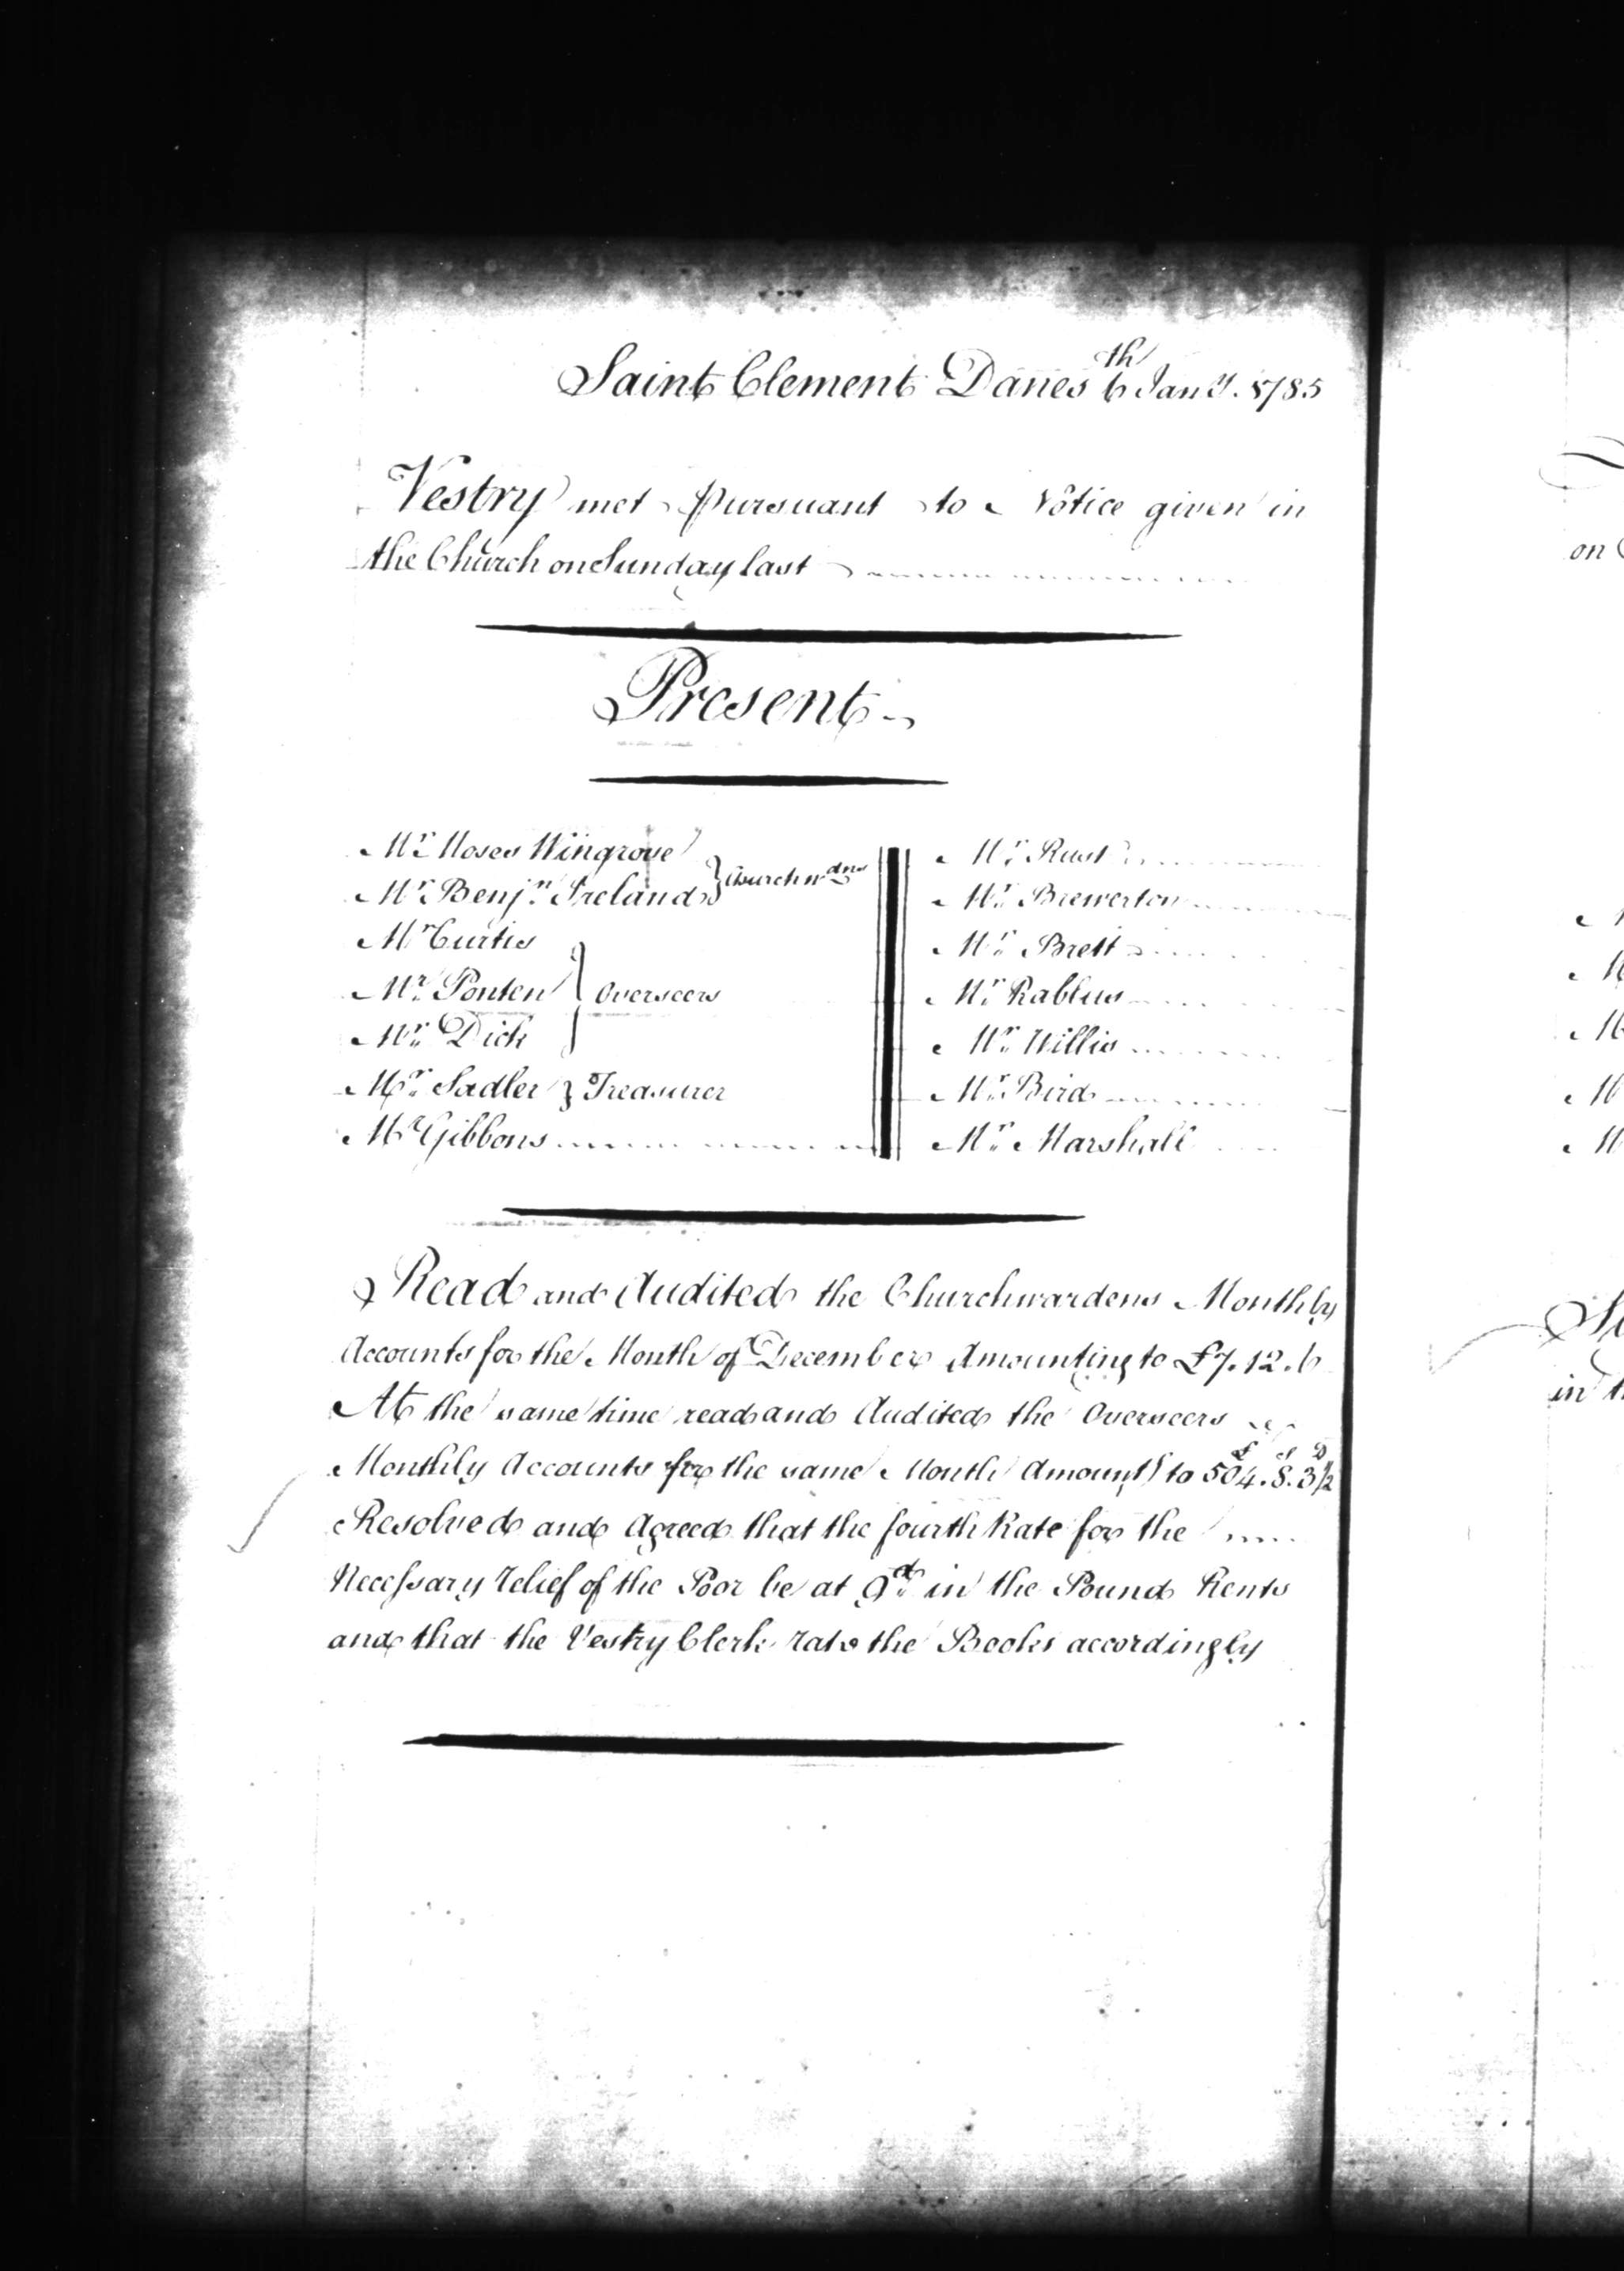 Saint Clement Danes 6th Jany. 1785
Vestry met Pursuant to Notice given in
the Church on Sunday last
Present
Mr. Moses Wingrove
Mr. Benjn. Ireland } Churchwdns
Mr Curtis
Mr. Ponten } Overseers
Mr. Dick
Mr. Sadler } Treasurer
Mr Gibbons
Mr. Rust
Mr. Brewerton
Mr. Brett
Mr. Rablus
Mr. Willis
Mr. Bird
Mr. Marshall
Read and Audited the Churchwardens Monthly
Accounts for the Month of December Amounting to £7.12.6
At the same time read and Audited the Overseers
Monthly Accounts for the same Month Amountg to £504.S8.D3½
Resolved and Agreed that the fourth Rate for the
Necessary relief of the Poor be at 9d. in the Pound Rents
and that the Vestry Clerk rate the Books accordingly
on
in